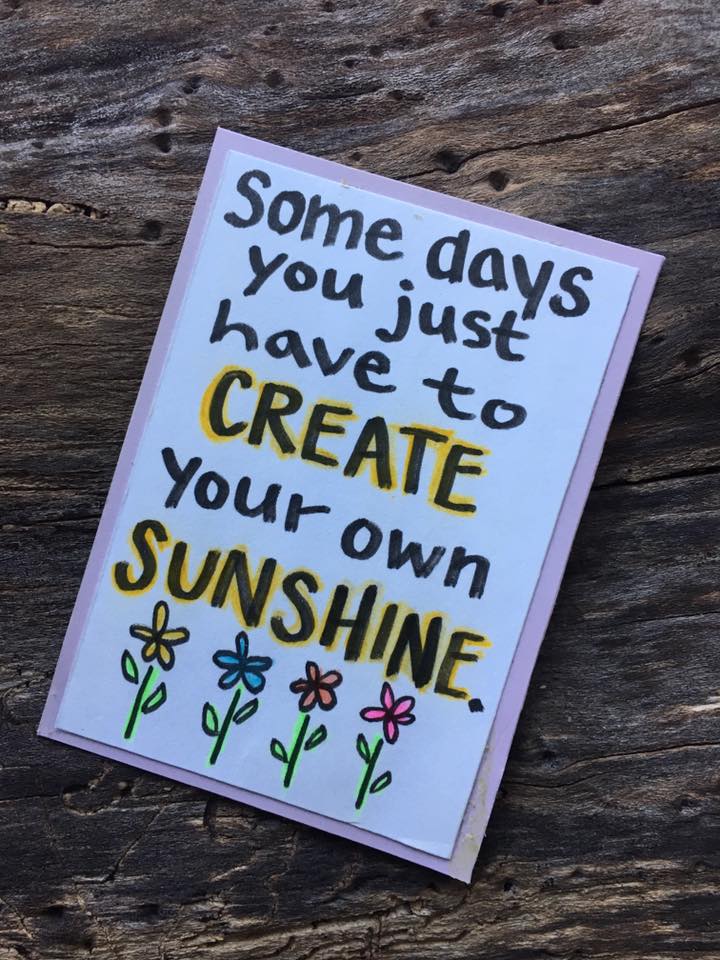 Some days
you just
have to
CREATE
your own
SUNSHINE.